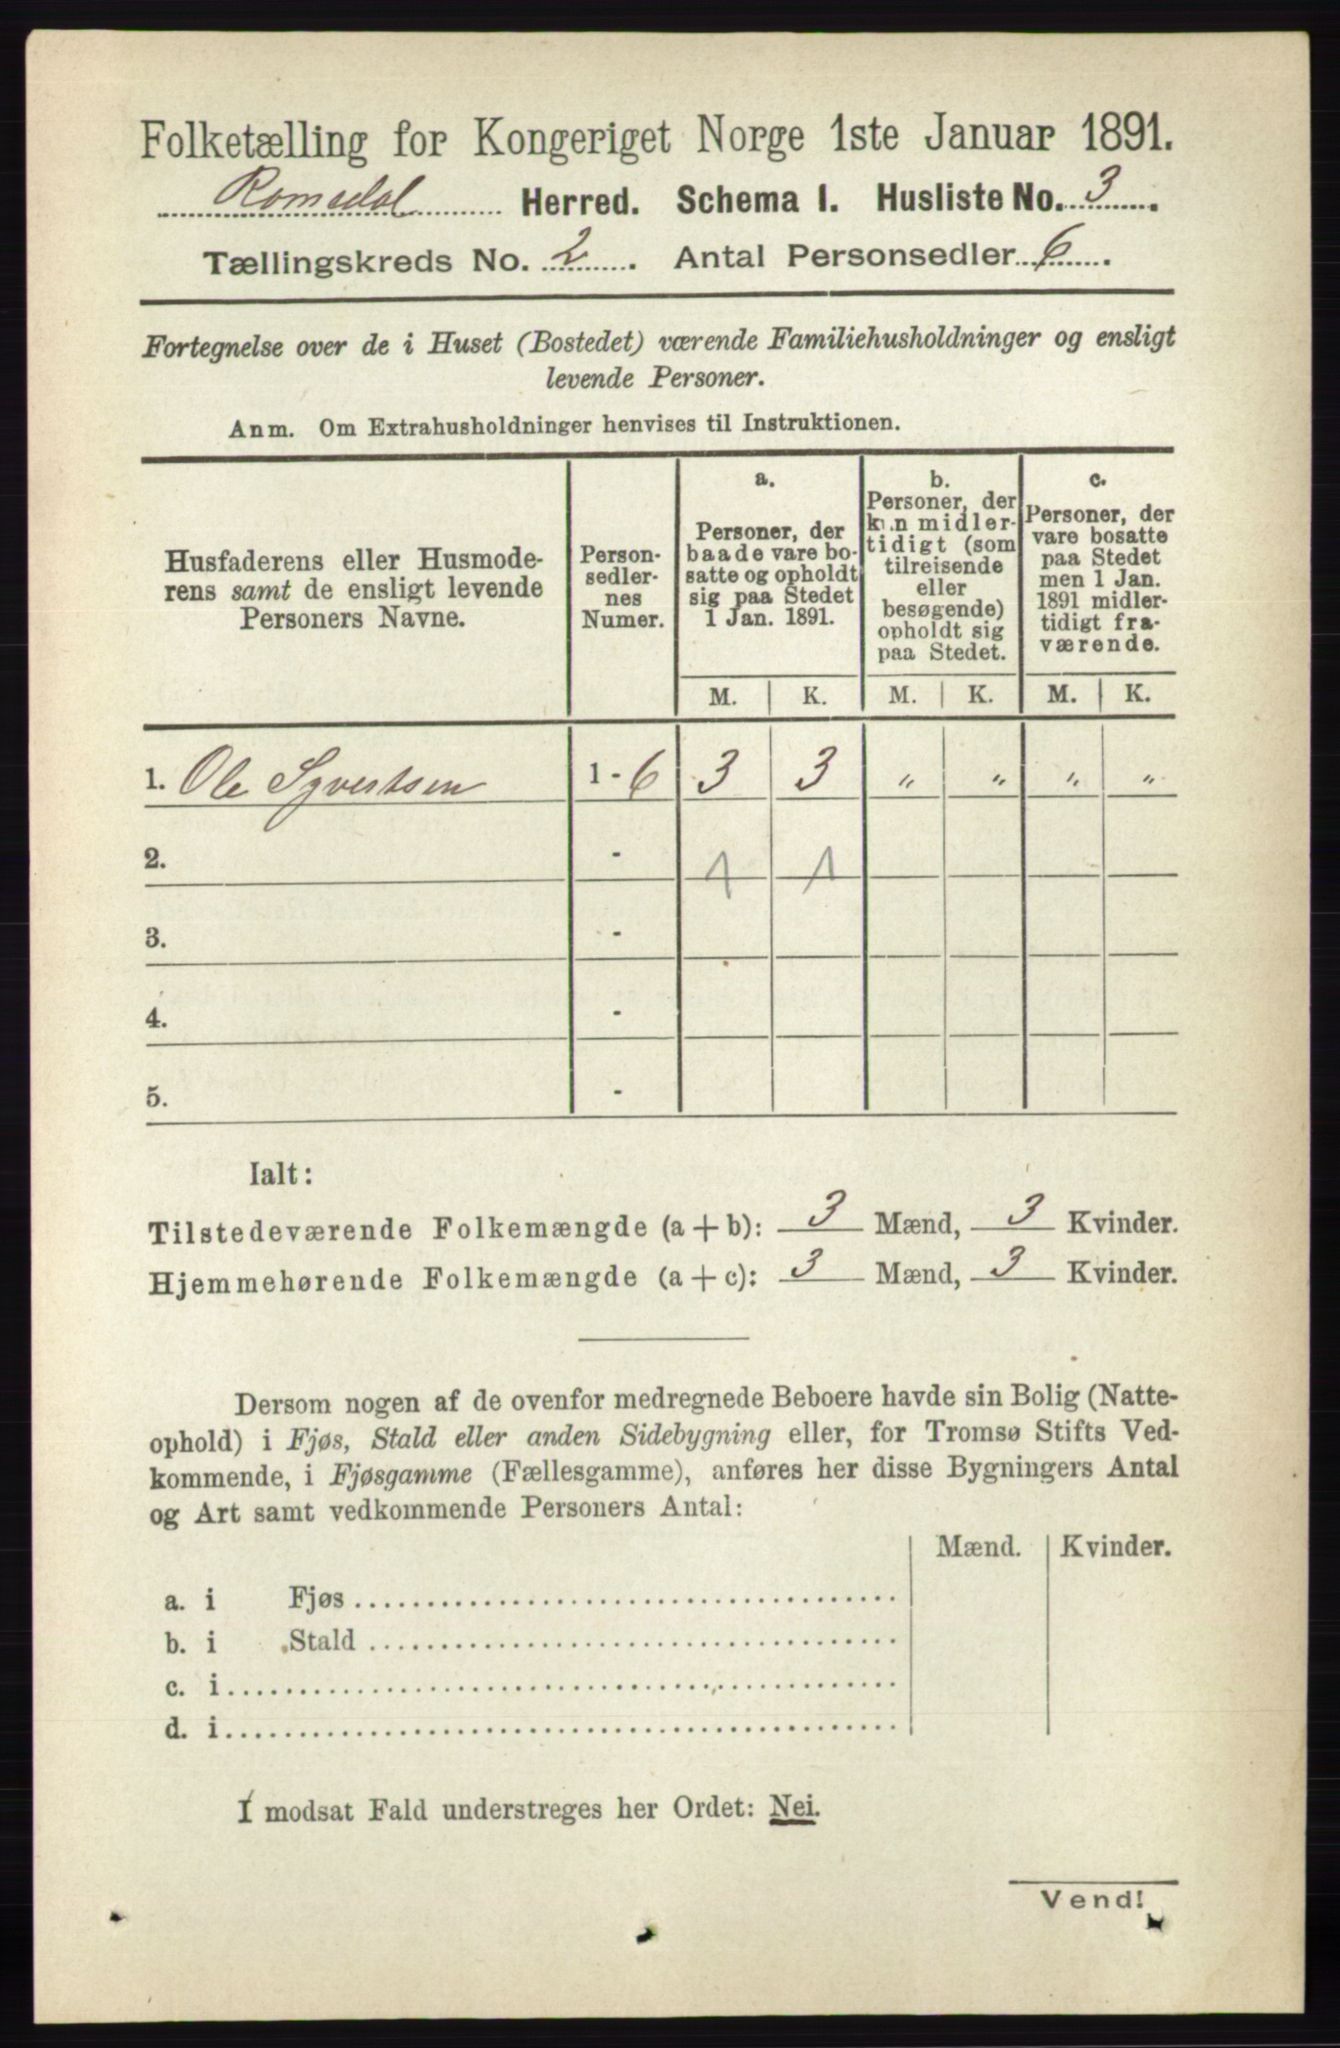 Folketælling for Kongeriget Norge 1ste Januar 1891.
Romedal Herred. Schema I. Husliste No. 3.
Tællingskreds No. 2. Antal Personsedler 6.
Fortegnelse over de i Huset (Bostedet) værende Familiehusholdninger og ensligt
levende Personer.
Anm. Om Extrahusholdninger henvises til Instruktionen.
Husfaderens eller Husmode-
rens samt de ensligt levende
Personers Navne.
Person-
sedler-
nes
Numer.
a.
Personer, der
baade vare bo-
satte og opholdt
sig paa Stedet
1 Jan. 1891.
b.
Personer, der
kun midler-
tidigt (som
tilreisende
eller
besøgende)
opholdt sig
paa Stedet.
c.
Personer, der
vare bosatte
paa Stedet
men 1 Jan.
1891 midler-
tidigt fra-
værende.
M. K. M. K. M. K.
1. Ole Syvertsen 1 - 6 3 3 " " " "
2. - 1 1
3. -
4. -
5. -
Ialt:
Tilstedeværende Folkemængde (a + b): 3 Mænd, 3 Kvinder.
Hjemmehørende Folkemængde (a + c): 3 Mænd, 3 Kvinder.
Dersom nogen af de ovenfor medregnede Beboere havde sin Bolig (Natte-
ophold) i Fjøs, Stald eller anden Sidebygning eller, for Tromsø Stifts Ved-
kommende, i Fjøsgamme (Fællesgamme), anføres her disse Bygningers Antal
og Art samt vedkommende Personers Antal:
Mænd. Kvinder.
a. i Fjøs
b. i Stald
c. i
d. i
I modsat Fald understreges her Ordet: Nei.
Vend!